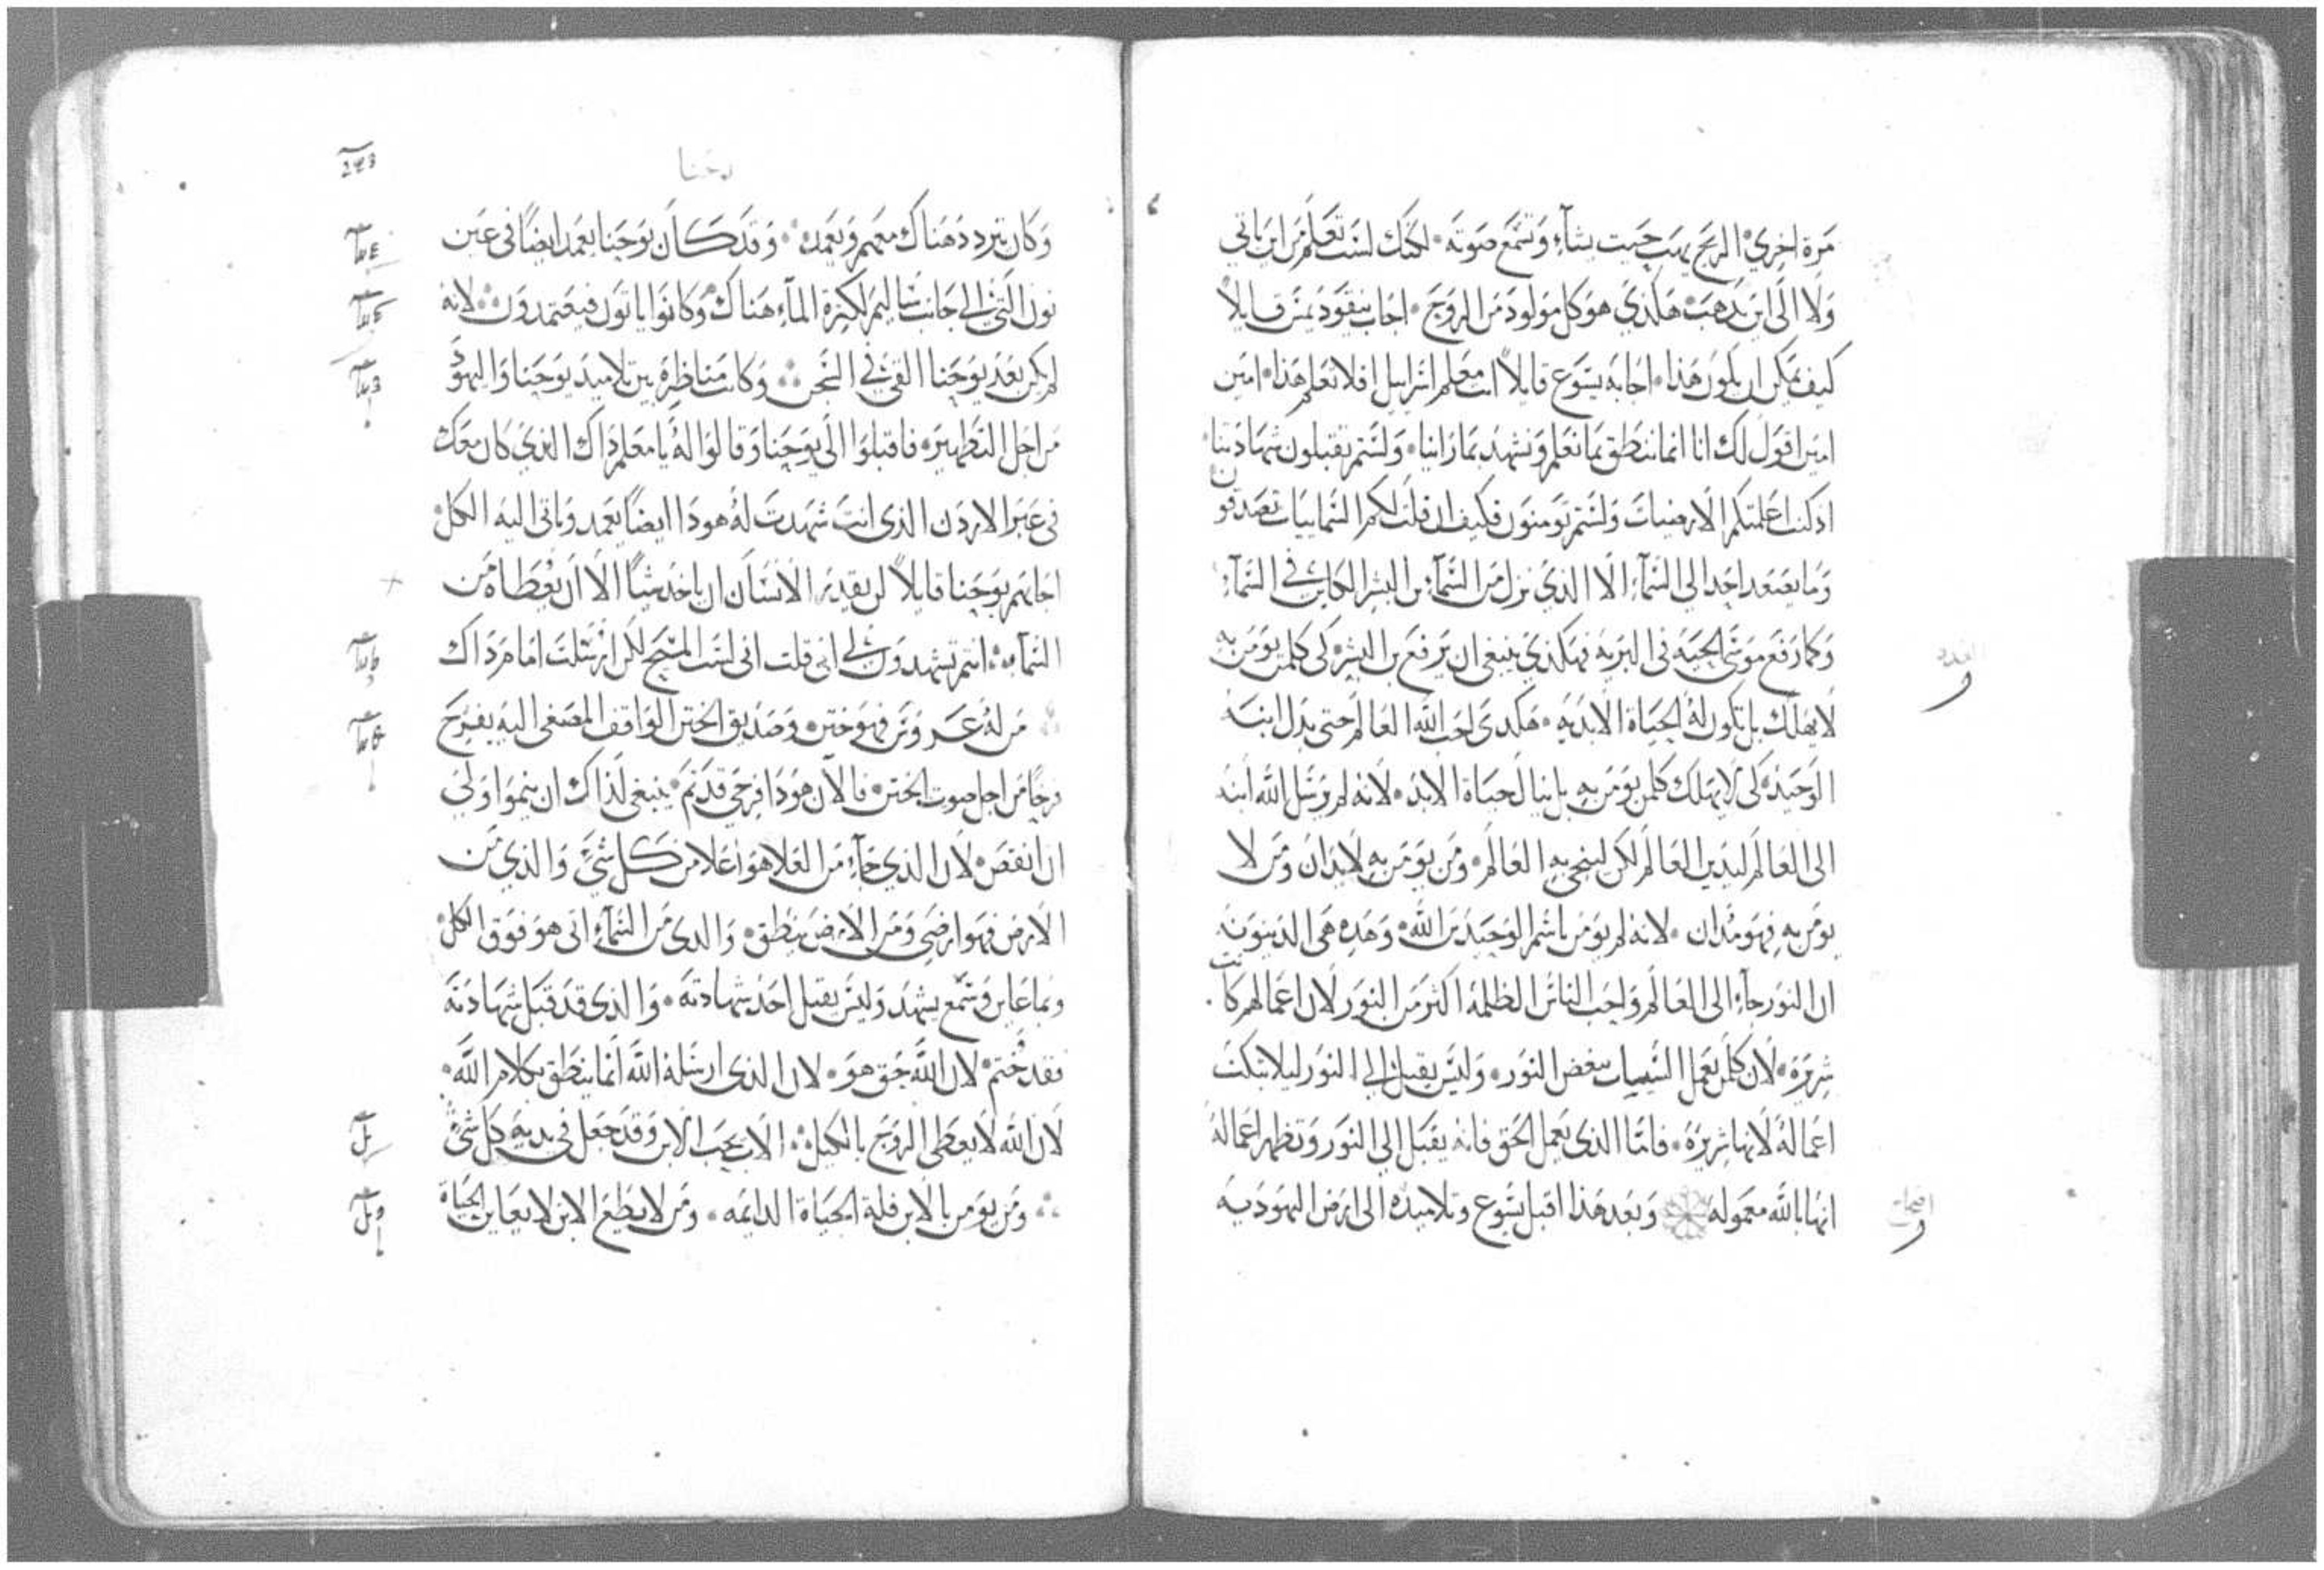 مرة اخري الريح يهب حيت يشآء وتسمع صوته لكنك لست تعلم من اين ياتي
ولا الى اين يذهب هكذي هو كل مولود من الروح اجاب نيقوديمس قايلاً
كيف يمكن ان يكون هذا اجابه يسوع قايلاً انت معلم اسراييل افلا تعلم هذا امين
امين اقول لك انا انما ننطق بما نعلم ونشهد بما راينا ولستم تقبلون شهادتنا
اذ كنت اعلمتكم الارضيات ولستم تومنون فكيف ان قلت لكم السماييات تصدقون
وما يصعد احد الى السمآء الا الذي نزل من السمآء بن البشر الكاين في السمآء
وكما رفع موسى الحية في البريه فهكذي ينبغي ان يرفع بن البشر كي كلمن يومن به
لا يهلك بل تكون له الحياة الابديه هكذى احب الله العالم حتى بدل ابنه
الوحيد كي لا يهلك كلمن يومن به بل ينال حياة الابد لانه لم يرسل الله ابنه
الى العالم ليدين العالم لكن لينجي به العالم ومن يومن به لا يدان ومن لا
يومن به فهو مدان لانه لم يومن باسم الوحيد بن الله وهذه هي الدينونه
ان النور جآء الى العالم واحب الناس الظلمة اكثر من النور لان اعمالهم كانت
شريره لان كلمن يعمل السييات يبغض النور وليس يقبل الي النور ليلا تبكت
اعماله لانها شريرة فاما الذي يعمل الحق فانه يقبل الي النور وتظهر اعماله
انها بالله معموله وبعد هذا اقبل يسوع وتلاميذه الى ارض اليهوديه
وكان يتردد هناك معهم ويعمد وقد كان يوحنا يعمد ايضاً في عين
نون التي الى جانب ساليم لكثرة المآء هناك وكانوا ياتون فيعتمدون لانه
لم يكن بعد يوحنا القي في السجن وكانت مناظرة بين تلاميذ يوحنا واليهود
من اجل التطهير فاقبلوا الى يوحنا وقالوا له يا معلم ذاك الذي كان معك
في عبر الاردن الذي انت شهدت له هودا ايضاً يعمد وياتي اليه الكل
اجابهم يوحنا قايلاً لن يقدر الانسان ان ياخذ شياً الا ان يعطاه من
السمآء انتم تشهدون لي اني قلت اني لست المسيح لكن ارسلت امام ذاك
من له عروس فهو ختن وصديق الختن الواقف المصغي اليه يفرح
فرحاً من اجل صوت الختن فالان هودا فرحي قد تم ينبغي لذاك ان ينموا ولي
ان انقص لان الذي جآء من العلا هو اعلا من كل شي والذي من
الارض فهو ارضي ومن الارض ينطق والذي من السمآء اتى هو فوق الكل
وبما عاين وسمع يشهد وليس يقبل احد شهادته والذي قد قبل شهادته
فقد ختم لان الله حق هو لان الذي ارسله الله انما ينطق بكلام الله
لان الله لا يعطي الروح بالكيل الاب يحب الابن وقد جعل في يديه كل شي
ومن يومن بالابن فله الحياة الدايمه ومن لا يطيع الابن لا يعاين الحياة